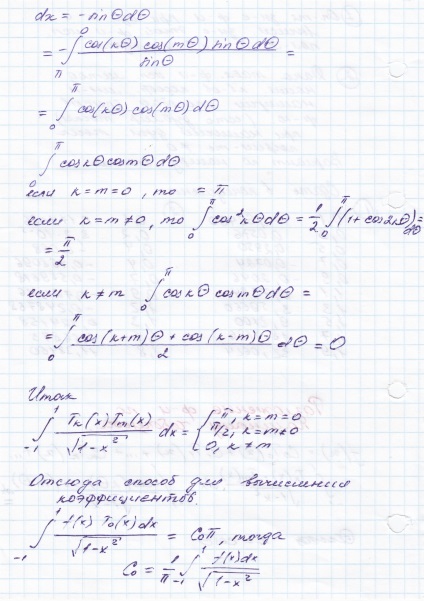 dx = -sinθdθ
= -∫_π^0 cos(kθ) cos(mθ) sinθ dθ / sinθ =
= ∫_0^π cos(kθ) cos(mθ) dθ
∫_0^π cos kθ cos mθ dθ
если k=m=0, то = π
если k=m≠0, то ∫_0^π cos²kθdθ = 1/2 ∫_0^π (1+cos2kθ)dθ =
= π/2
если k≠m ∫_0^π cos kθ cos mθ dθ =
= ∫_0^π (cos(k+m)θ + cos(k-m)θ) / 2 dθ = 0
Итак
∫_{-1}^1 T_k(x) T_m(x) / √(1-x²) dx = { π, k=m=0
π/2, k=m≠0
0, k≠m
Отсюда способ для вычисления
коэффициентов.
∫_{-1}^1 f(x) T_0(x) dx / √(1-x²) = C_0 π, тогда
C_0 = 1/π ∫_{-1}^1 f(x)dx / √(1-x²)